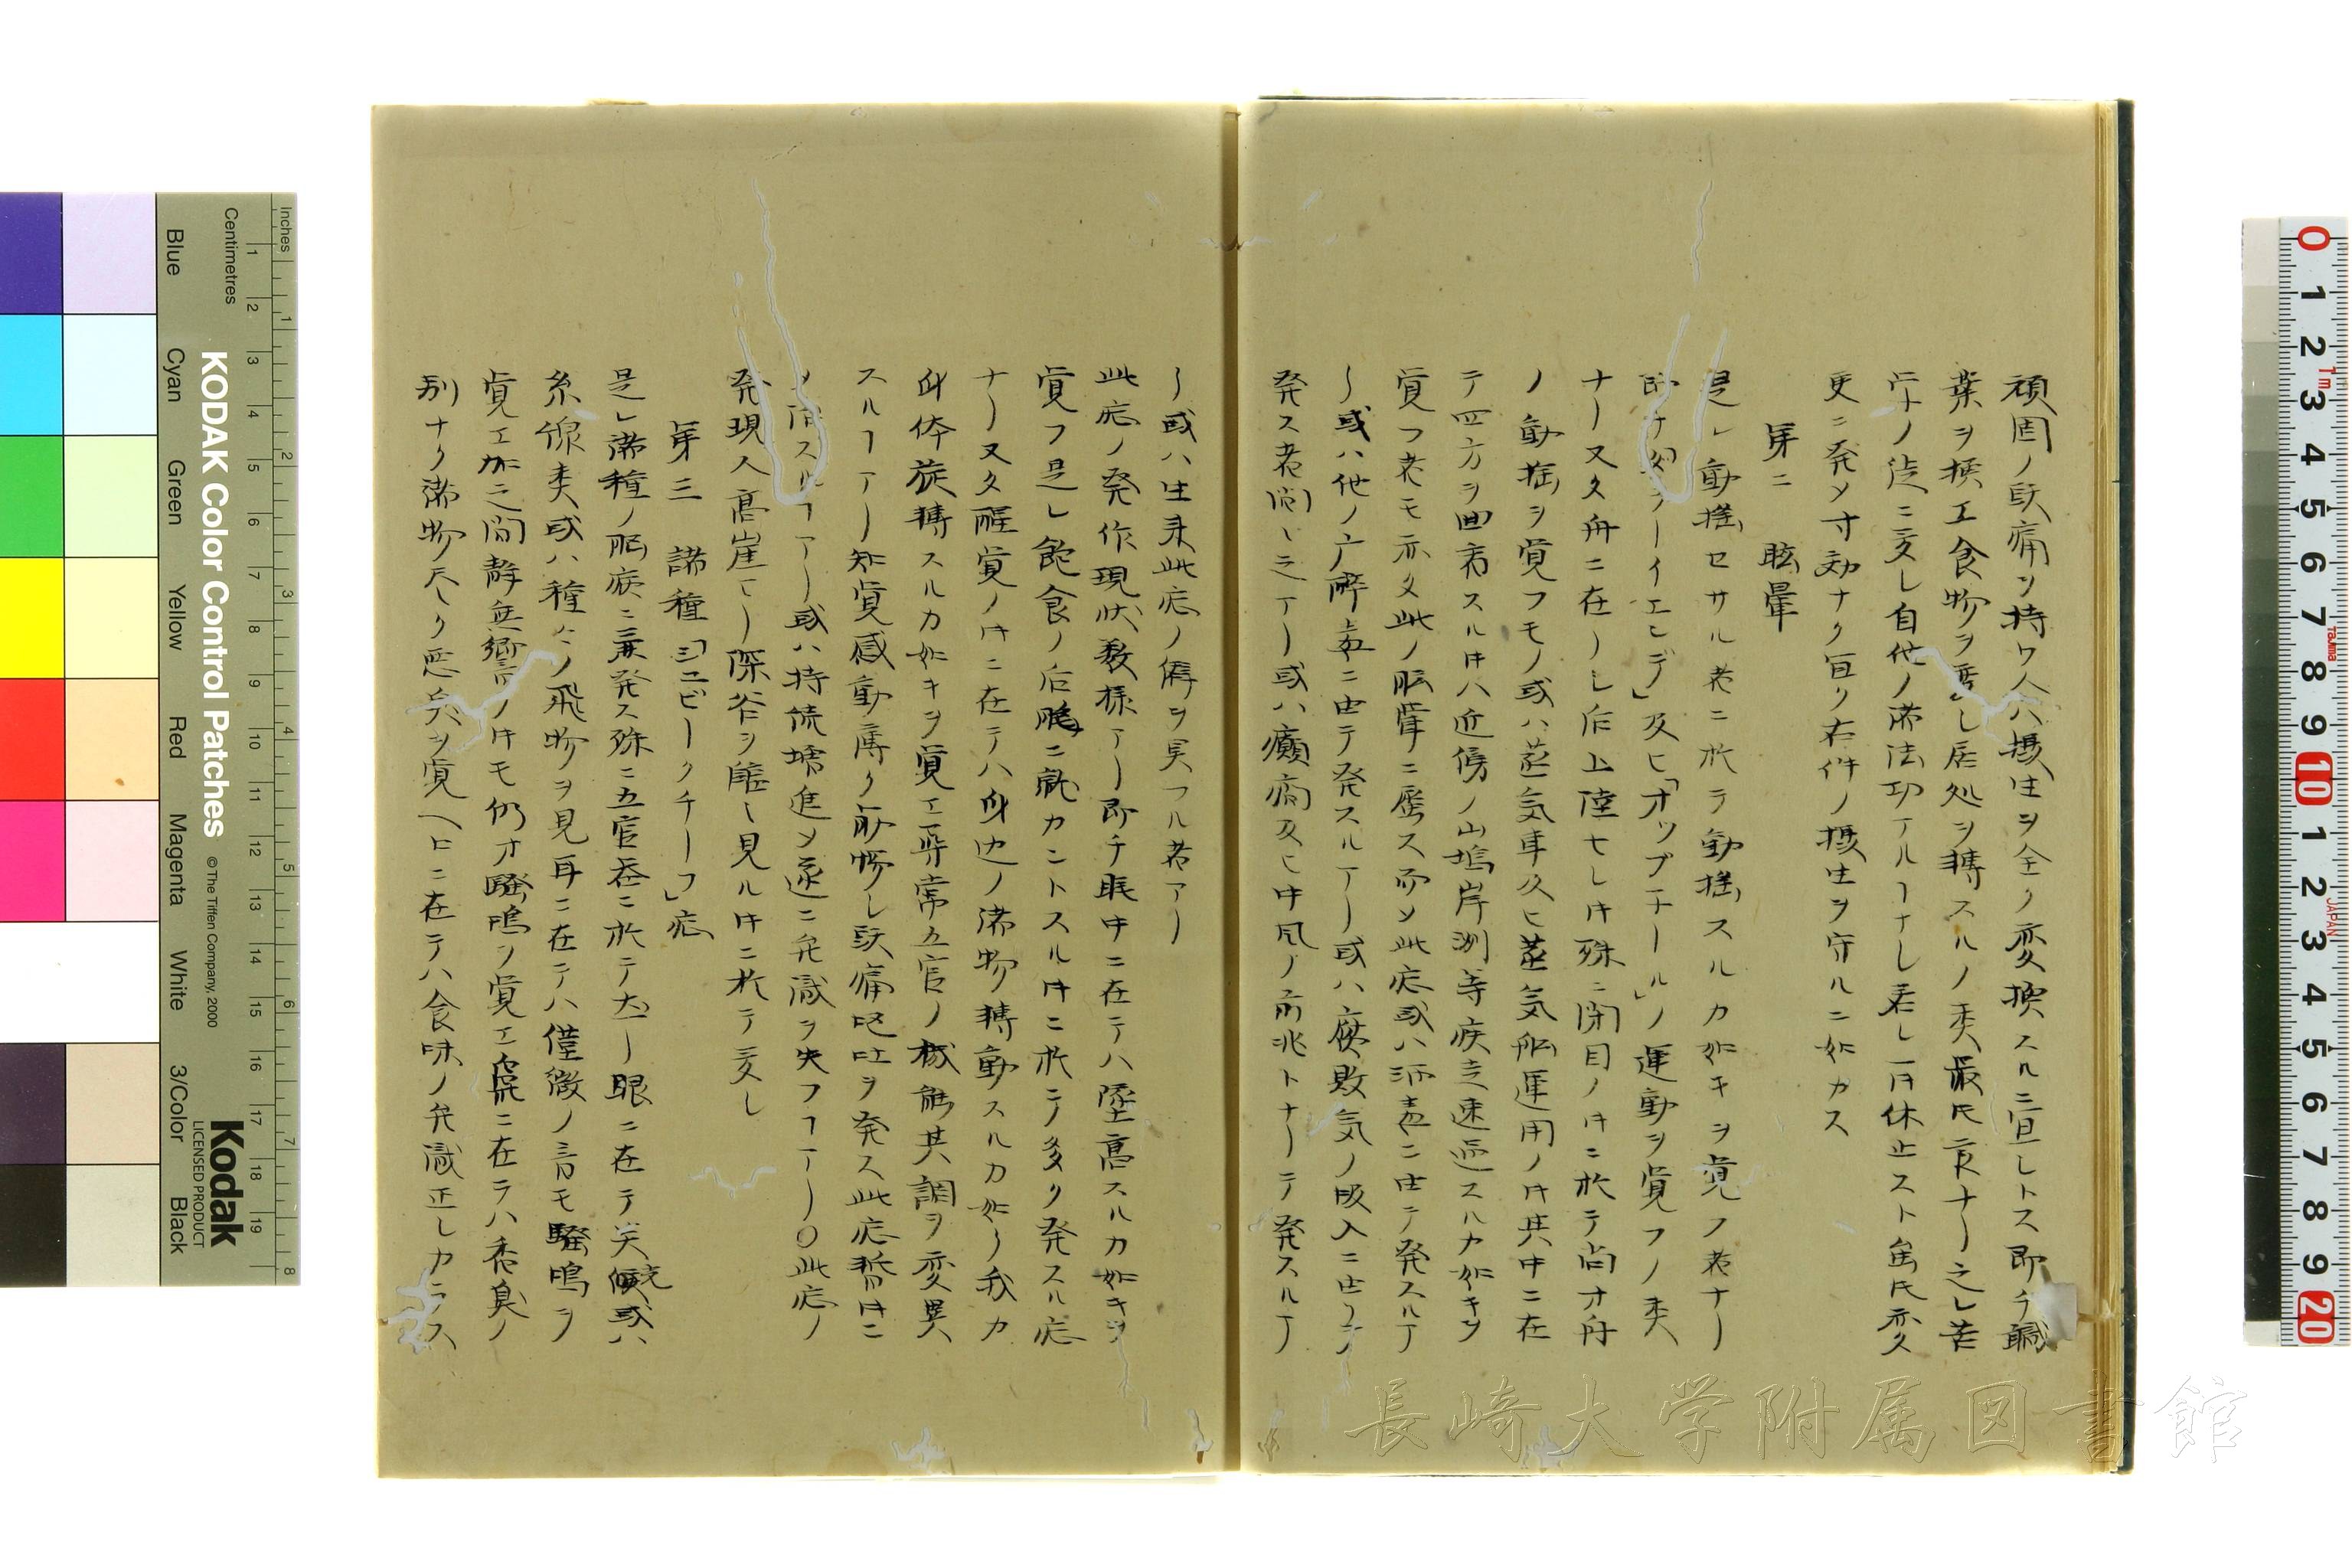 頑固ノ頭痛ヲ持ツ人ハ摂生ヲ全ク変換スルニ宜シトス即チ職
業ヲ換エ食物ヲ変シ居処ヲ轉スルノ類最氏良ナリ之レ苦
ノ徒ニ交シ自他ノ諸法功アルヿナシ若シ一旦休止スト雖氏亦夕
更ニ発メ寸効ナク宜ク右件ノ摂生ヲ守ルニ如カス
第二 眩暈
是レ動揺セサル者ニ於テ動揺スルカ如キヲ覚フ者ナリ
即ナわラーイエンデ」及ヒ「オップチール」ノ運動ヲ覚フノ類
ナリ又タ舟ニ在リシ后上陸セシ時殊ニ閉目ノ時ニ於テ尚オ舟
ノ動揺ヲ覚フモノ或ハ蒸気車及ヒ蒸気船運用ノ時其中ニ在
テ四方ヲ回看スル時ハ近傍ノ山塢岸洲等疾走速逝スルカ如キヲ
覚フ者モ亦タ此ノ眩暈ニ属ス而メ此症或ハ酒毒ニ由テ発スルア
リ或ハ他ノ麻酔毒ニ由テ発スルアリ或ハ腐敗気ノ吸入ニ由リテ
発ス者間々之アリ或ハ癲癇及ヒ中風ノ前兆トナリテ発スルア
リ或ハ生来此症ノ僻ヲ具フル者アリ
此症ノ発作現状数様アリ即チ眠中ニ在テハ墜高スルカ如キヲ
覚フ是レ飽食ノ后眠ニ就カントスル時ニ於テ多ク発スル症
ナリ又タ醒覚ノ時ニ在テハ身辺ノ諸物轉動スルカ如ク我カ
身体旋轉スルカ如キヲ覚エ平常五官ノ機能其調ヲ変異
スルヿアリ知覚感動薄ク筋惨シ頭痛嘔吐ヲ発ス此症暫時ニ
メ消スルヿアリ或ハ持続増進ヲ遂ニ弁識ヲ失フヿアリ○此症ノ
発現人高崖ヨリ深谷ヲ臨ミ見ル時ニ於テ多シ
第三 諸種「シュビークチーフ」症
是レ諸種ノ脳病ニ兼発ス殊ニ五官器ニ於テ在リ眼ニ在テ光耀或ハ
糸線類或ハ種々ノ飛物ヲ見耳ニ在テハ僅微ノ音モ騒鳴ヲ
覚エ加之間静無響ノ時モ仍オ騒鳴ヲ覚エ鼻ニ在テハ香臭ノ
別ナク諸物尽ク悪臭ヲ覚ヘ口ニ在テハ食味ノ弁識正シカラス